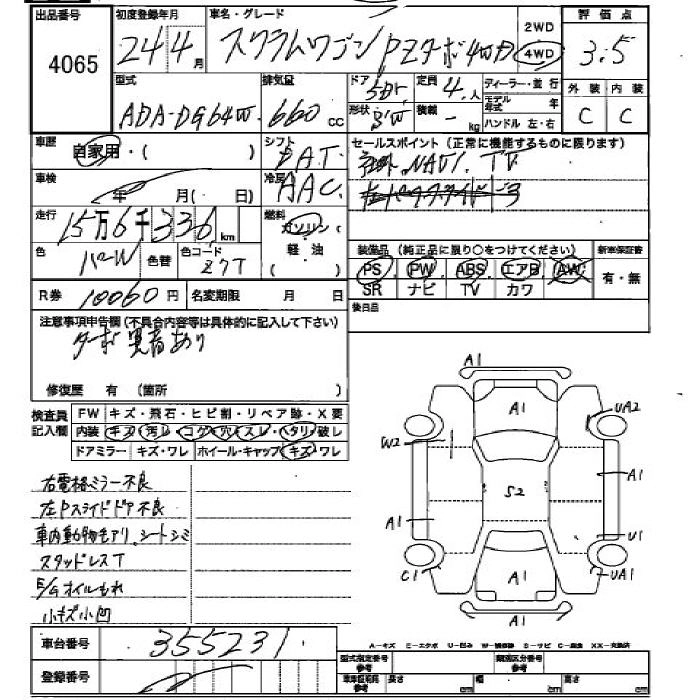 出品番号 初度登録年月 車名・グレード 2WD 評価点
4065 24年 4月 スクラムワゴン PZターボ4WD 4WD 3.5
型式 排気量 ドア 5Dr 定員 4人 ディーラー・並行 外装 内装
ADA-DG64W 660cc 形状 積載 - kg モデル年式 年 C C
ハンドル 左・右
車歴 自家用・( ) シフト FAT セールスポイント(正常に機能するものに限ります)
車検 年 月( 日) 冷房 AAC 社外NAVI. TV
走行 15万6千336km 燃料 ガソリン 左パワースライドドア
軽油 ( ) 装備品(純正品に限り○をつけてください) 新車保証書
色 パールW 色替 色コード Z7T PS PW ABS エアB AW 有・無
R券 10060円 名変期限 月 日 SR ナビ TV カワ
後日品
注意事項申告欄(不具合内容等は具体的に記入して下さい)
ターボ異音あり
修復歴 有 (箇所 )
検査員記入欄 FW キズ・飛石・ヒビ割・リペア跡・X要
内装 キズ・汚レ・コゲ・穴・スレ・ヘタリ・破レ
ドアミラー キズ・ワレ ホイール・キャップ キズ・ワレ
右電格ミラー不良
左Pスライドドア不良
車内動物毛アリ、シートシミ
スタッドレスT
E/Gオイルもれ
小キズ小凹
A1
A1 UA2
W2
S2 A1
A1
U1
C1 A1 UA1
車台番号 355231
A-キズ E-エクボ U-凹み W-補修跡 S-サビ C-腐食 XX-交換済
登録番号 型式指定番号 参考 類別区分番号 参考
車車証明用 参考 長さ cm 幅 cm 高さ cm